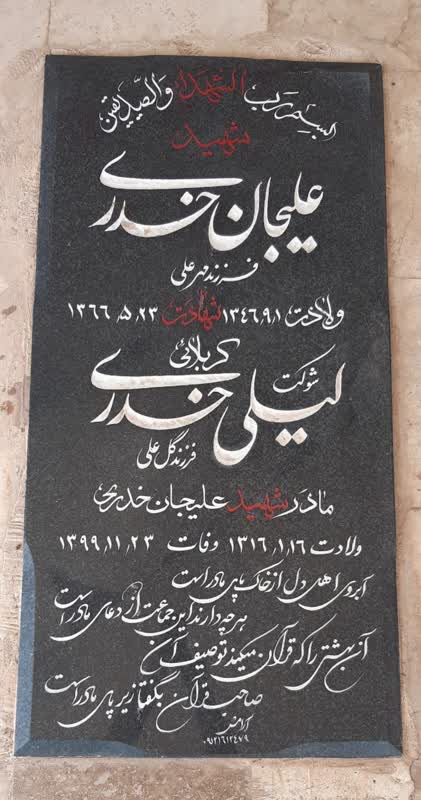 بسم رب الشهدا والصدیقین
شهید
علیجان خدری
فرزند مهرعلی
ولادت ۱۳۴۶٫۹٫۱ شهادت ۱۳۶۶٫۵٫۲۳
کربلائی
شوکت
لیلی خدری
فرزند گل علی
مادر شهید علیجان خدری
ولادت ۱۳۱۶٫۱٫۱۶ وفات ۱۳۹۹٫۱۱٫۲۳
آبروی اهل دل از خاک پای مادر است
هر چه دارند این جماعت از دعای مادر است
آن بهشتی را که قرآن میکند توصیف آن
صاحب قرآن بگفتا زیر پای مادر است
۰۹۱۳۱۶۱۲۴۷۹